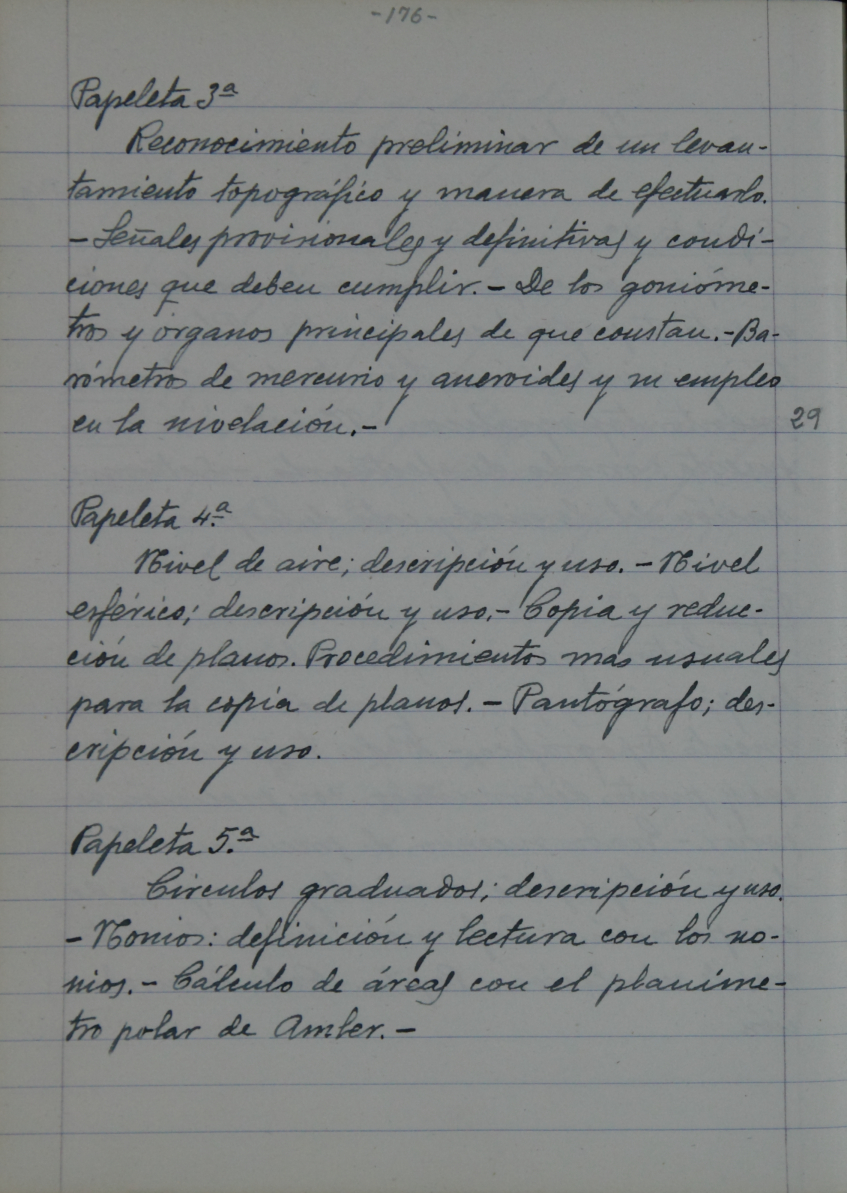 -176-
Papeleta 3ª
Reconocimiento preliminar de un levan-
tamiento topográfico y manera de efectuarlo.
- Señales provisionales y definitivas y condi-
ciones que deben cumplir. - De los gonióme-
tros y órganos principales de que constan. - Ba-
rómetros de mercurio y aneroides y su empleo
en la nivelación. -
29
Papeleta 4.ª
Nivel de aire; descripción y uso. - Nivel
esférico; descripción y uso. - Copia y reduc-
ción de planos. Procedimientos mas usuales
para la copia de planos. - Pantógrafo; des-
cripción y uso.
Papeleta 5.ª
Circulos graduados; descripción y uso.
- Nonios: definición y lectura con los no-
nios. - Cálculo de áreas con el planíme-
tro polar de Amler. -